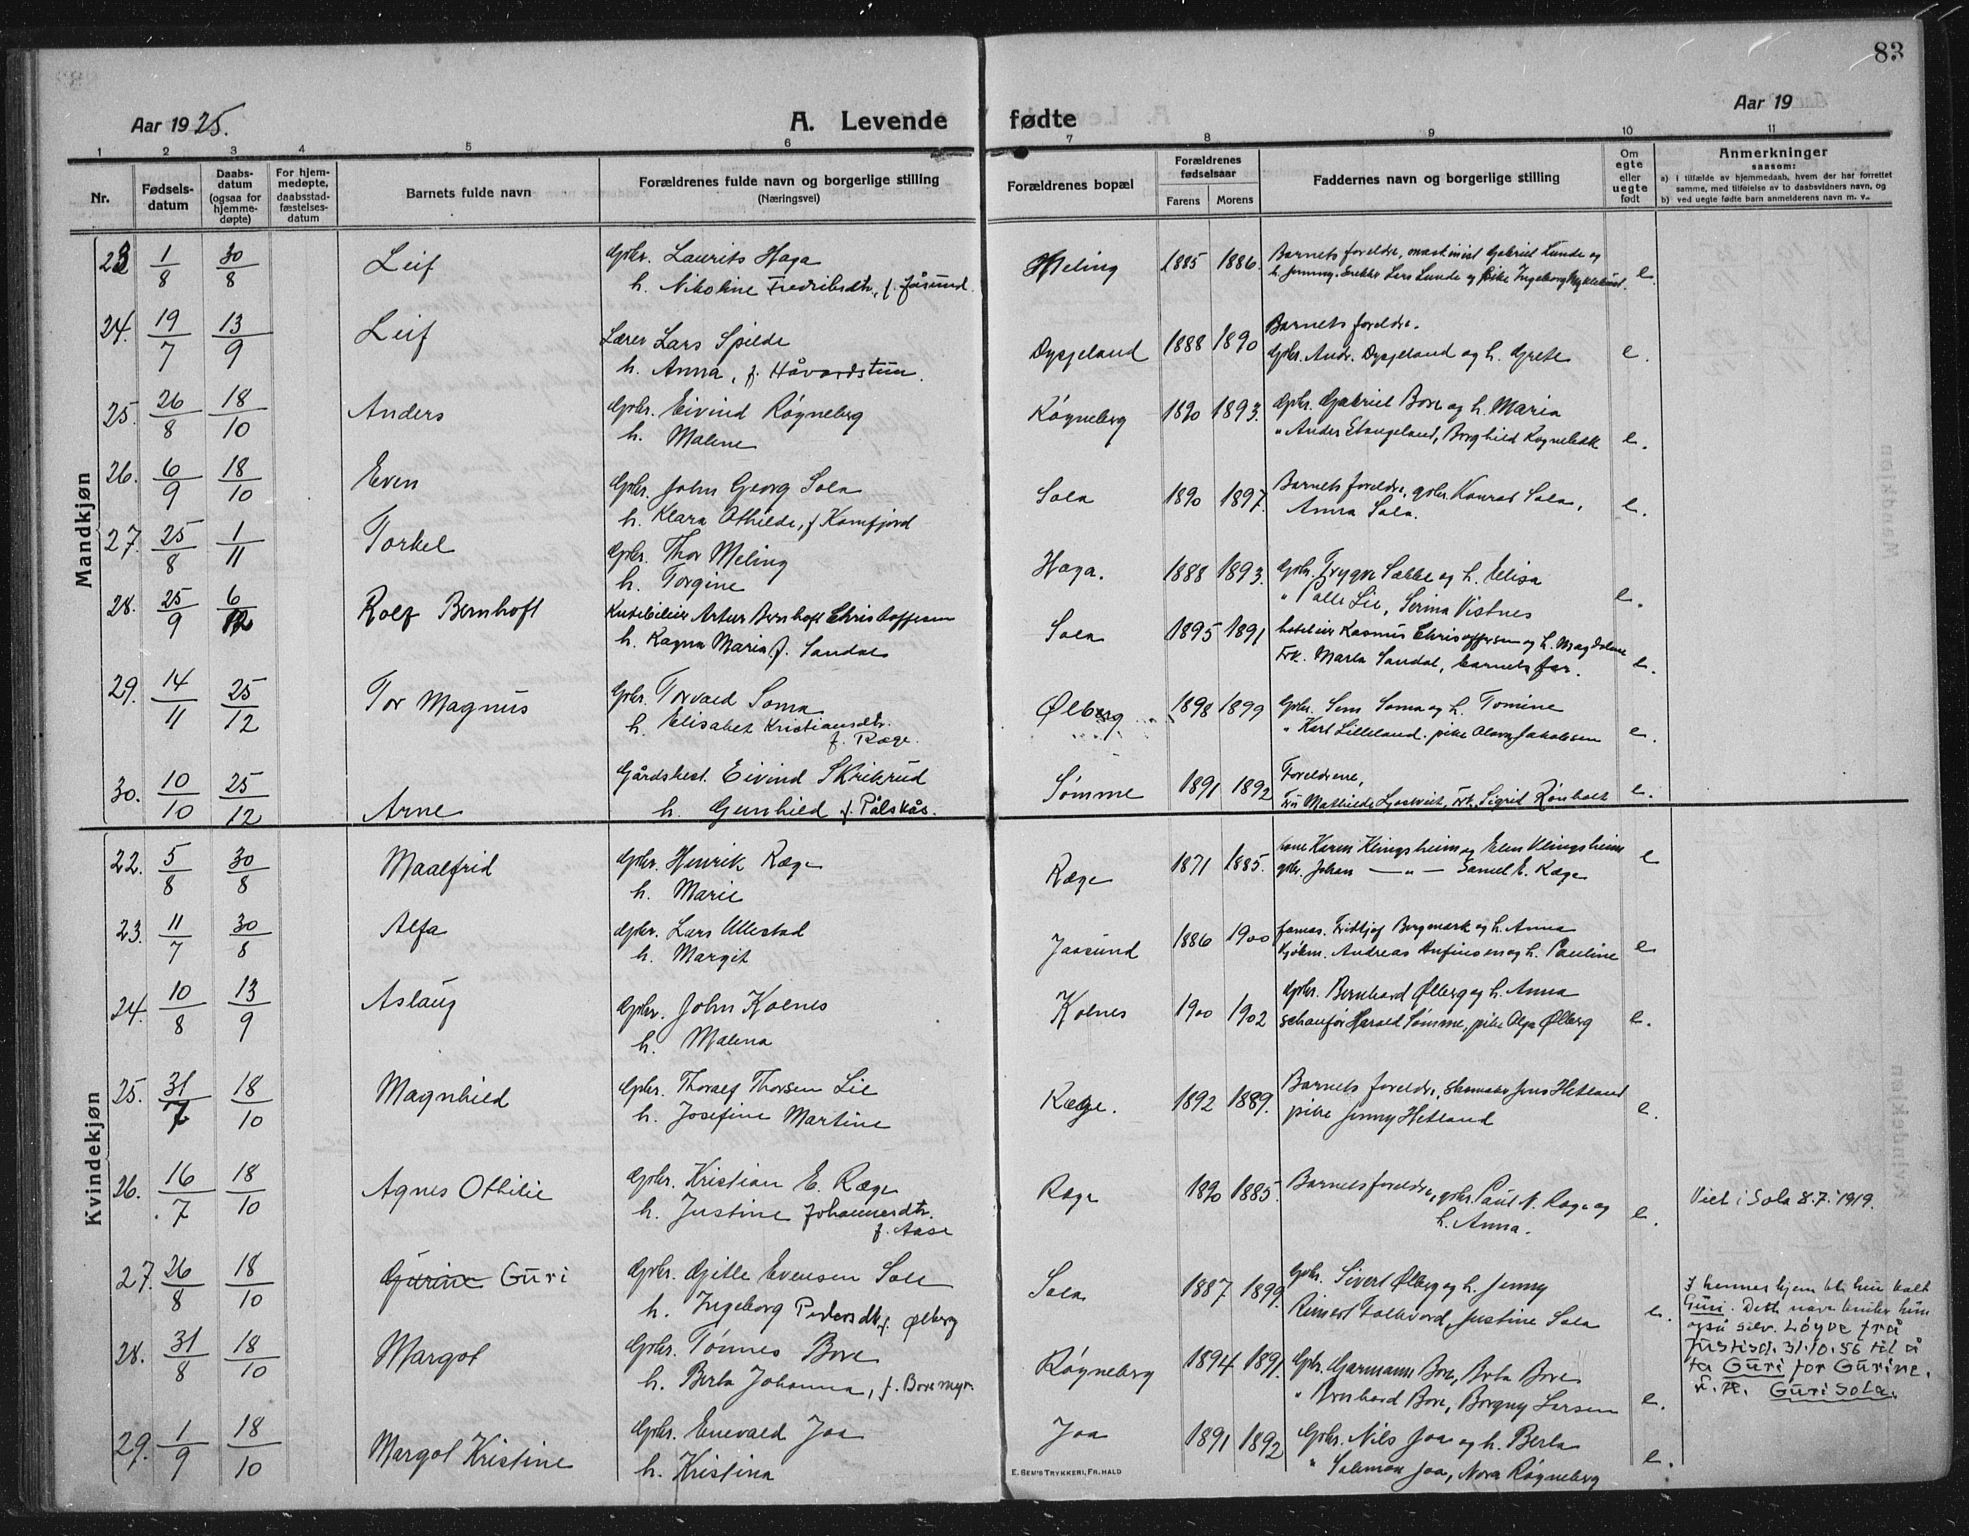 83
Aar 1925.
A. Levende fødte
Aar 19
1 2 3 4 5 6 7 8 9 10 11
Nr.
Fødsels-
datum
Daabs-
datum
(ogsaa for
hjemme-
døpte)
For hjem-
medøpte,
daabsstad-
fæstelses-
datum
Barnets fulde navn
Forældrenes fulde navn og borgerlige stilling
(Næringsvei)
Forældrenes bopæl
Forældrenes
fødselsaar
Farens Morens
Faddernes navn og borgerlige stilling
Om
egte
eller
uegte
født
Anmerkninger
saasom:
a) i tilfælde av hjemmedaab, hvem der har forrettet
samme, med tilføielse av to daabsvidners navn, og
b) ved uegte fødte barn anmelderens navn m. v.
Mandkjøn
23 1/8 30/8 Leif Gbr. Laurits Haga Meling 1885 1886. Barnets foreldre, maskinist Gabriel Lunde og e.
h. Nikoline Fredriksdtr., f. Jåsund. h. Jenny, Lars Lunde og pike Ingeborg
24. 19/7 13/9 Leif Lærer Lars Spilde Dysjeland 1888 1890 Barnets foreldre. e.
h. Anna, f. Håvardstun. Gbr. Andr. Dysjeland og h. Grete
25. 26/8 18/10 Anders Gbr. Eivind Røyneberg Røyneberg 1890 1893. Gbr. Gabriel Bore og h. Maria e.
h. Malene " Anders Stangeland, Borghild
26. 6/9 18/10 Even Gbr. John Georg Sola Sola 1890 1897. Barnets foreldre, gbr. Konrad Sola, e.
h. Klara Othilde, f. Kornfjord Anna Sola.
27. 25/8 1/11 Torkel Gbr. Thor Meling Haga. 1888 1893. Gbr. Trygve Sække og h. Elisa e.
h. Torgine " Palle Lie, Serina Vistnes
28. 25/9 6/12 Rolf Bernhoft Artur Bernhoft Christoffersen Sola 1895 1891 hotelier Rasmus Christoffersen og h. Magdalene e.
h. Ragna Maria f. Sandal Frk. Marta Sandal, barnets far.
29. 14/11 25/12 Tor Magnus Gbr. Torvald Soma Ølberg 1898 1899 Gbr. Sem Soma og h. Tomine e.
h. Elisabet Kristiansdtr. " Karl Lilleland. pike Olava Jakobsen
f. Ræge.
30. 10/10 25/12 Arne Gårdsbest. Eivind Skrikrud Sømme 1891 1892 Foreldrene, e.
h. Gunhild f. Pålskås. Fru Mathilde Frk. Sigrid Rønholt
Kvindekjøn
22. 5/8 30/8 Maalfrid Gbr. Henrik Ræge Ræge 1871 1885. kone Karen Klingsheim og Elen Klingsheim e
h. Marie gbr. Johan — " — Samuel E. Ræge
23. 11/7 30/8 Alfa Gbr. Lars Ullestad Jaasund 1886 1900 Fridtjof Bergmark og h. Anna e
h. Margit Andreas Anfinsen og h. Pauline
24. 10/8 13/9 Aslaug Gbr. John Kolnes Kolnes 1900 1902 Gbr. Bernhard Ølberg og h. Anna e.
h. Malena schaufør Harald Sømme, pike Olga Ølberg
25. 31/7 18/10 Magnhild Gbr. Thoralf Thorsen Lie Ræge. 1892 1889. Barnets foreldre, skomaker Jens Hetland e.
h. Josefine Martine pike Jenny Hetland
26. 16/7 18/10 Agnes Othilie Gbr. Kristian E. Ræge Ræge 1890 1885. Barnets foreldre, gbr. Paul N. Ræge og e. Viet i Sola 8.7.1919.
h. Justine Johannesdtr. h. Anna.
f. Aase
27. 26/8 18/10 Gurine Guri Gbr. Gitle Evensen Sola Sola 1887 1899. Gbr. Sivert Ølberg og h. Jenny e. I hennes hjem ble hun kalt
h. Ingeborg Pedersdtr. f. Ølberg Reinert Folkvord, Justine Sola Guri. Dette navn bruker hun
også selv. Løyve frå
Justisd. 31.10.56 til å
ta Guri for Gurine.
Guri Sola.
28. 31/8 18/10 Margot Gbr. Tønnes Bore Røyneberg 1894 1891. Gbr. Garmann Bore, Berta Bore e.
h. Berta Johanna, f. Boremyr. " Bernhard Bore, Borgny Larsen
29. 1/9 18/10 Margot Kristine Gbr. Enevald Joa Joa 1891 1892 Gbr. Nils Joa og h. Berta e.
h. Kristina " Salomon Joa, Nora Røyneberg
E. SEM'S TRYKKERI, FR.HALD